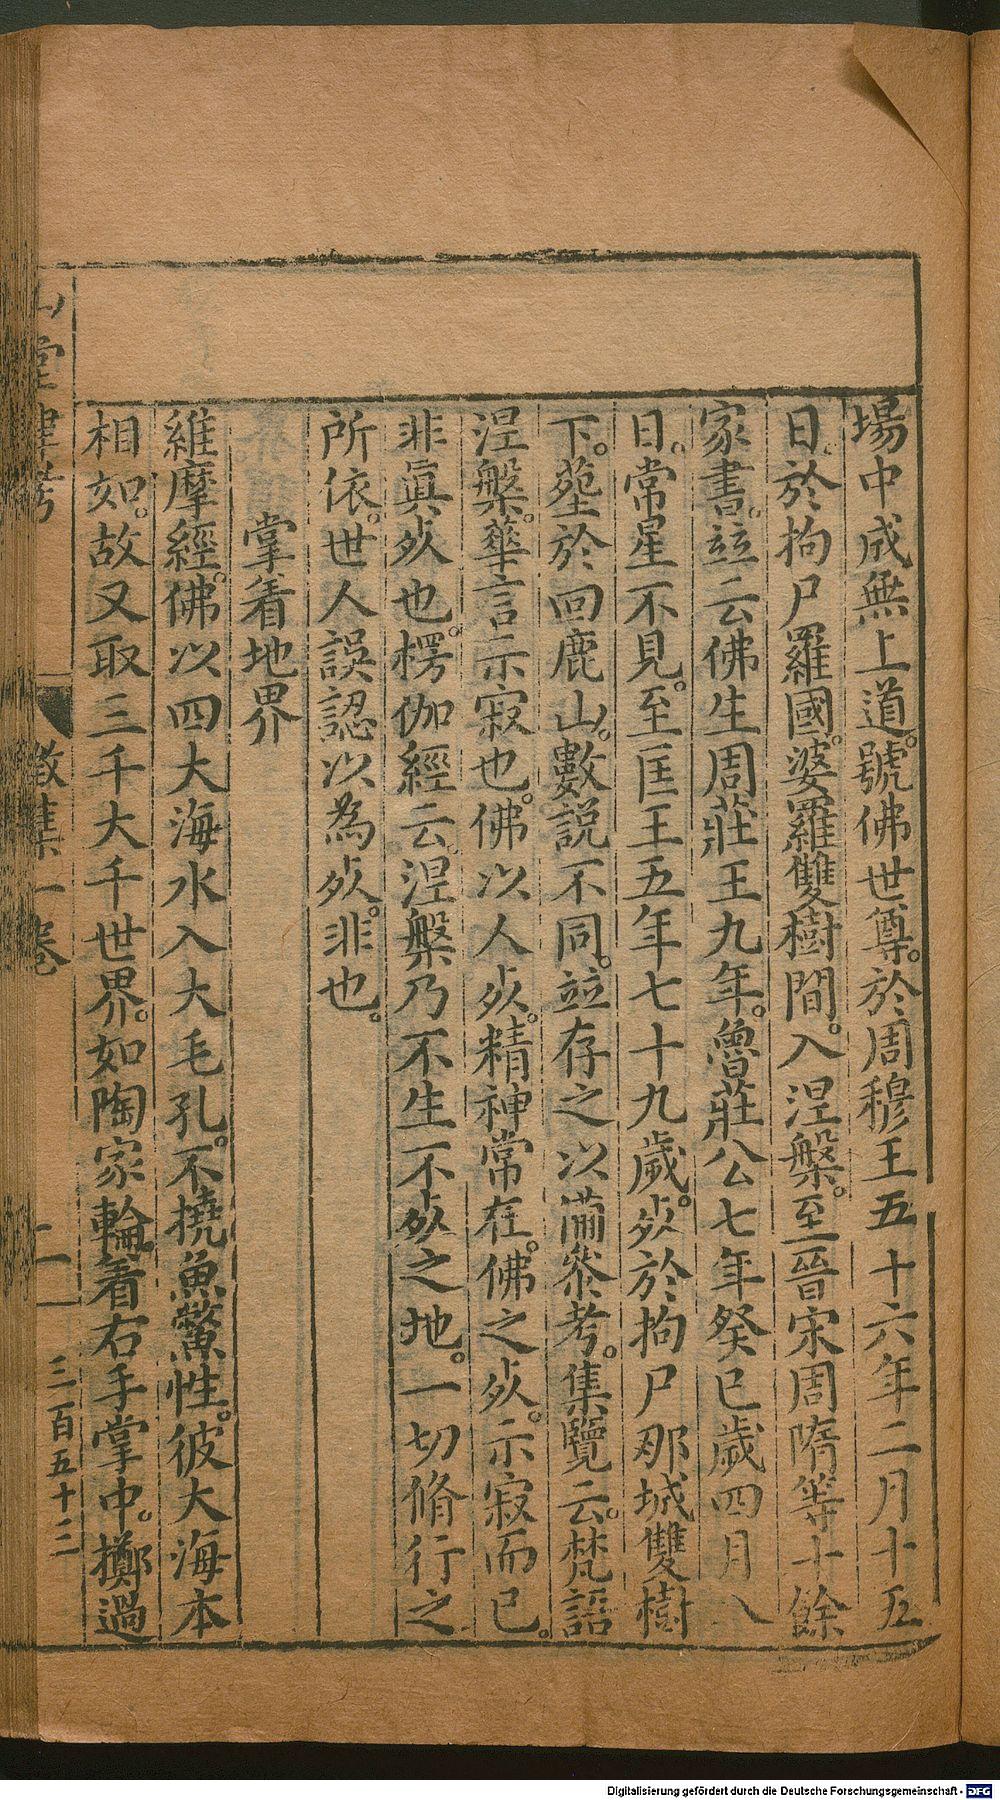 場中成無上道。號佛世尊。於周穆王五十六年二月十五
日。於拘尸羅國。婆羅雙樹間。入涅槃。至晉宋周隋等十餘
家書。竝云佛生周莊王九年。魯莊公七年癸巳歲四月八
日。常星不見。至匡王五年七十九歲。死於拘尸那城雙樹
下。塟於回鹿山。數說不同。竝存之以俻叅考。集覽云。梵語
涅槃。華言示寂也。佛以人死。精神常在。佛之死。示寂而已。
非眞死也。楞伽經云涅槃乃不生不死之地。一切脩行之
所依。世人誤認以為死。非也。
掌着地界
維摩經。佛以四大海水入大毛孔。不撓魚鱉性。彼大海本
相如。故又取三千大千世界。如陶家輪着右手掌中。擲過
山堂肆考
徵集一卷
二
三百五十二
Digitalisierung gefördert durch die Deutsche Forschungsgemeinschaft - DFG